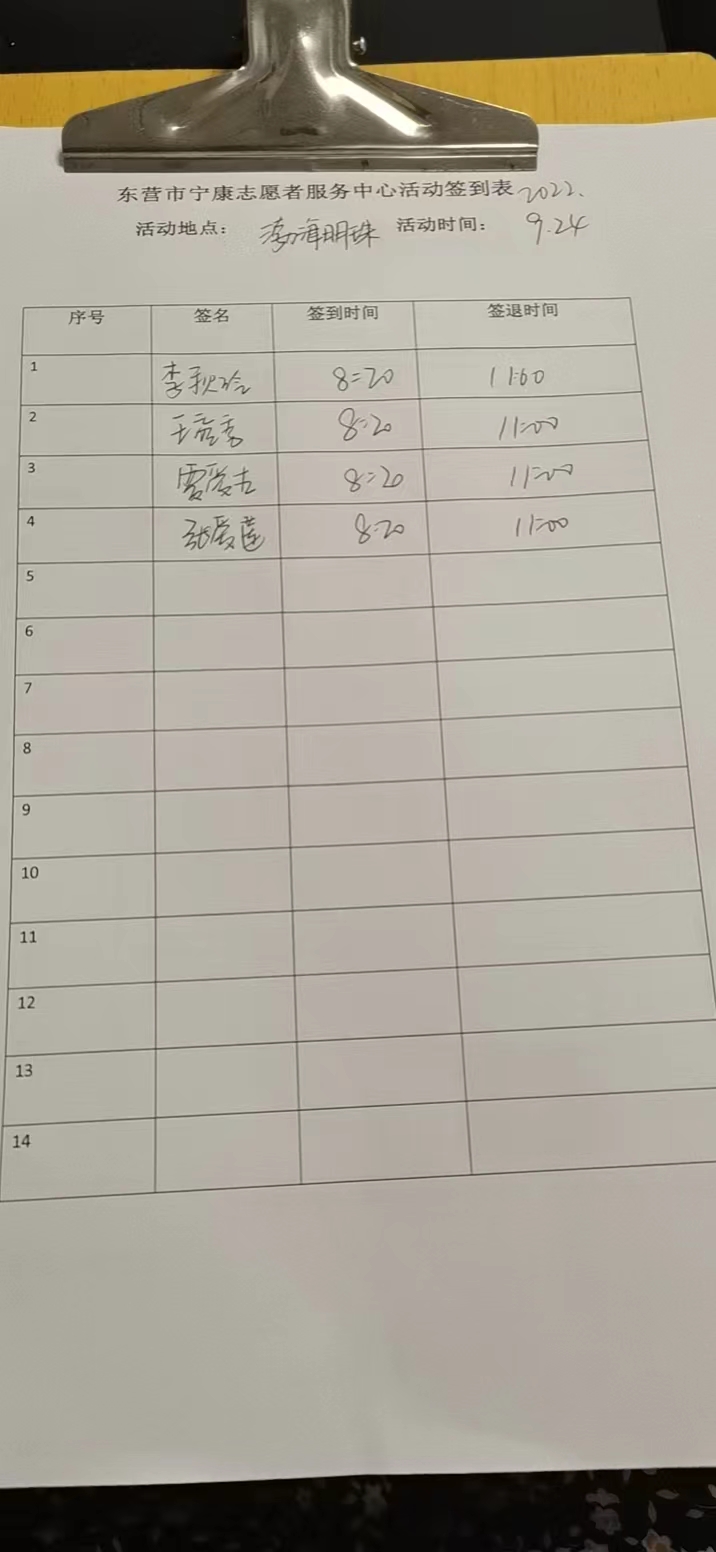 东营市宁康志愿者服务中心活动签到表 2022.
活动地点： 渤海明珠 活动时间： 9.24
序号 签名 签到时间 签退时间
1 李秋玲 8:20 11:00
2 8:20 11:00
3 8:20 11:00
4 张爱莲 8:20 11:00
5
6
7
8
9
10
11
12
13
14